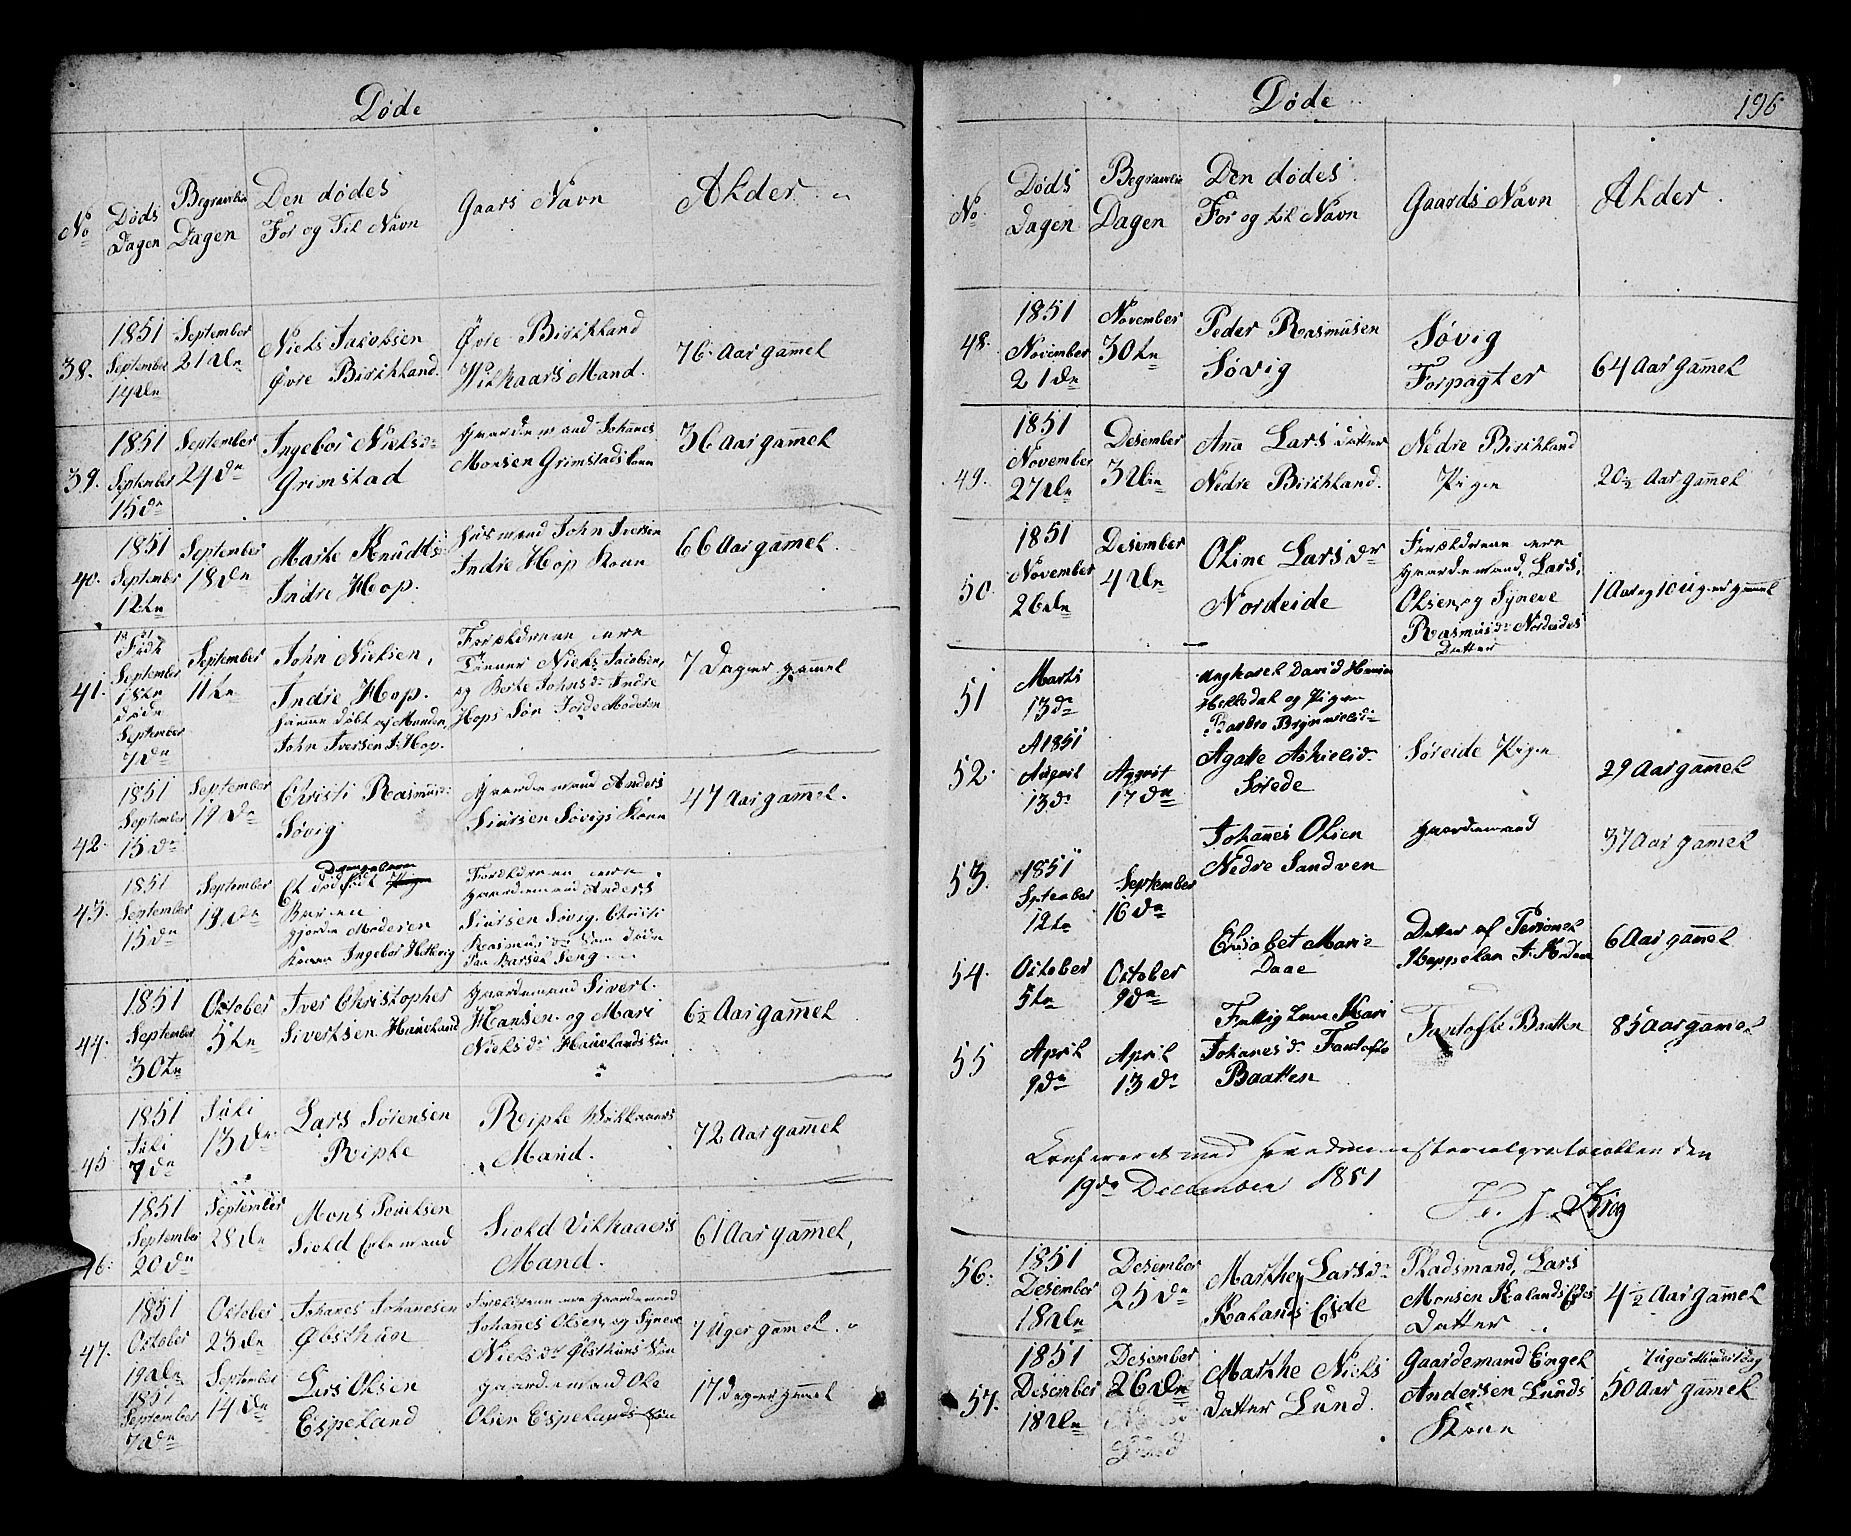 Døde
No
Døds
Dagen
Begravelse
Dagen
Den dødes
For og Til Navn
Gaars Navn
Alder
38.
1851
September
14de
September
21de
Niels Jacobsen
Øvre Birkeland
Øvre Birkeland
Vilkaars Mand.
76 Aar gamel
39.
1851
September
15de
September
24de
Ingebor Nielsdr
Grimstad
Gaardemand Johanes
Monsen Grimstads kone
36 Aar gamel
40.
1851
September
12te
September
18de
Marte Knudtsdr
Indre Hop.
Husmand John Iversen
Indre Hop Kone
66 Aar gamel.
41.
1851
Født
September
1ste
døde
September
7de
September
11te
John Nielsen,
Indre Hop.
hieme døbt af Manden
John Iversen I: Hop.
Forældrene ere
Tienner Niels Jacobsen,
og Berte Johnsdr Indre
Hops Søn Jorde Moderen
7 Dager gamel
42.
1851
September
15de
September
19de
Christi Rasmusdr
Søvig
Gaardemand Anders
Siursen Søvigs Kone
47 Aar gamel.
43.
1851
September
15de
September
19de
Et dødfødt Drengebarn
Barnen
gjorde Moderen
Konne Ingebor Helvig
Forældrene ere
Gaardemand Anders
Siursen Søvig. Christi
Rasmusdr som døde
Paa Barsel Seng
44.
1851
September
30te
October
5te
Iver Christopher
Sivertsen Haueland
Gaardemand Sivert
Hansen og Mari
Nielsdr Hauelands Søn
6½ Aar gamel
45.
1851
Juli
7de
Juli
13de
Lars Sørensen
Riple
Riple Vilkaars
Mand.
72 Aar gamel
46.
1851
September
20de
September
28de
Mons Poulsen
Siold Enkemand
Siold Vilkaars
Mand.
61 Aar gamel,
47.
1851
October
19de
October
23de
Johanes Johanesen
Øbsthun
Forældrene ere Gaardemand
Johanes Olsen, og Syneve
Nielsdr Øbsthuns Søn
7 Uger gamel.
1851
September
7de
September
14de
Lars Olsen
Espeland
gaardemand Ole
Olsen Espelands Søn
17 dager gamel
Døde
196
No
Døds
Dagen
Begravelse
Dagen
Den dødes
For og til Navn
Gaards Navn
Alder
48.
1851
November
21de
November
30te
Peder Rasmusen
Søvig
Søvig
Forpagter
64 Aar gamel
49.
1851
November
27de
Desember
3die
Ana Lars datter
Nedre Birkeland.
Nedre Birkeland
Pige
20½ Aar gamel
50.
1851
November
26de
Desember
4de
Oline Larsdr
Nordeide
Forældrene ere
Gaardemand, Lars,
Olsen, og Syneve
Rasmusdr Nordeides
Datter
1 Aar og 10 uger gamel
51
Marts
13de
Ungkarl David Hansen
Helledal og Pigen
Barbro Brynnielsdr
52.
A 1851
August
13de
August
17de
Agatte Askielsdr
Sørede
Søreide Pige
29 Aar gamel
53.
1851
September
12te
September
16de
Johannes Olsen
Nedre Sandven
Gaardemand
37 Aar gamel
54.
October
5te
October
9de
Elisabet Marie
Daae
Datter af Personel
Kappelan
6 Aar gamel
55
April
9de
April
13de
Fattig Lem Mari
Johanesdr Fantofte
Baatten
Fantofte Bratten
85 Aar gamel
Confereret med Hovedministerialprotocollen den
19de December 1851
Krog
56.
1851
Desember
18de
Desember
25de
Marthe Larsdr
Kalands Eide
Pladsmand, Lars
Monsen Kalands Eides
Datter
4½ Aar gamel
57.
1851
Desember
18de
Desember
26de
Marthe Niels
datter Lund.
Gaardemand Engel
Andersen Lunds
Kone
7 uger mindert dag
50 Aar gamel